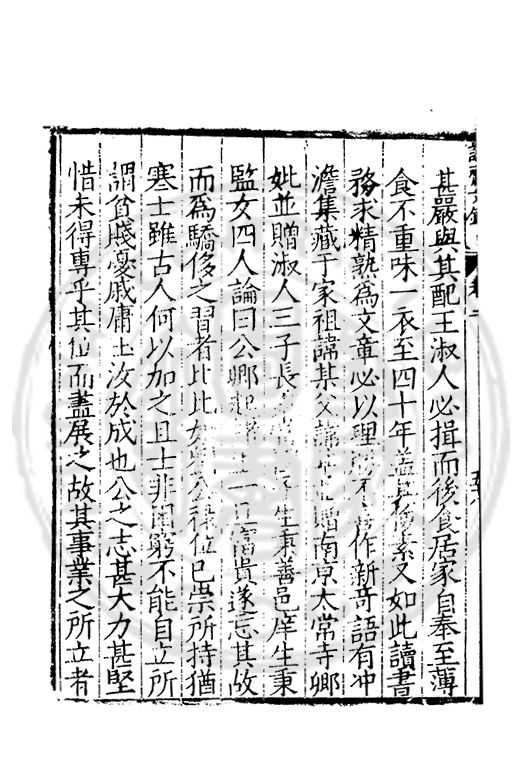 甚嚴與其配王淑人必揖而後食居家自奉至薄
食不重味一衣至四十年蓋其儉素又如此讀書
務求精熟為文章必以理勝不喜作新奇語有冲
澹集藏于家祖諱某父諱某贈南京太常寺卿
妣並贈淑人三子長生秉善邑庠生秉
監女四人論曰公卿起一旦富貴遂忘其故
而為驕侈之習者比比公祿位已崇所持猶
寒士雖古人何以加之且士非困窮不能自立所
謂貧賤憂戚庸玉汝於成也公之志甚大力甚堅
惜未得專乎其位而盡展之故其事業之所立者